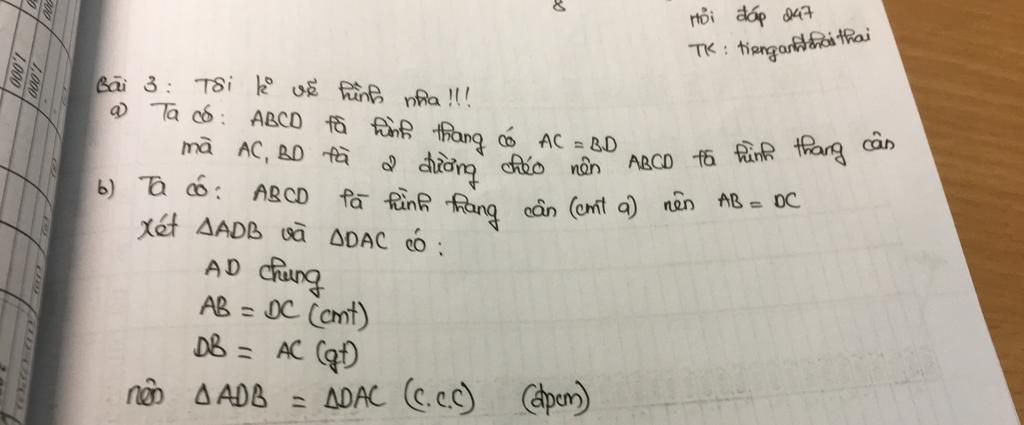 8
Hỏi đáp 247
TK: tienganhthaithai
Bài 3: Tôi k° vẽ hình nha!!!
a) Ta có: ABCD là hình thang có AC = BD
mà AC, BD là 2 đường chéo nên ABCD là hình thang cân
b) Ta có: ABCD là hình thang cân (cmt a) nên AB = DC
xét ΔADB và ΔDAC có:
AD chung
AB = DC (cmt)
DB = AC (gt)
nên ΔADB = ΔDAC (c.c.c) (đpcm)
1.000
1.000